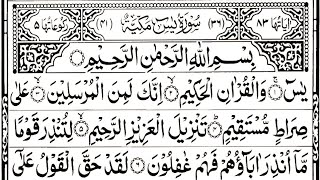 اٰیَاتُهَا ٨٣ (٣٦) سُوْرَةُ یٰسٓ مَکِّیَّةٌ (٤١) رُکُوْعَاتُهَا ٥
بِسْمِ اللّٰهِ الرَّحْمٰنِ الرَّحِیْمِ
یٰسٓ ۚ وَالْقُرْاٰنِ الْحَکِیْمِ ۙ اِنَّكَ لَمِنَ الْمُرْسَلِیْنَ ۙ عَلٰی
صِرَاطٍ مُّسْتَقِیْمٍ ؕ تَنْزِیْلَ الْعَزِیْزِ الرَّحِیْمِ ۙ لِتُنْذِرَ قَوْمًا
مَّاۤ اُنْذِرَ اٰبَآؤُهُمْ فَهُمْ غٰفِلُوْنَ لَقَدْ حَقَّ الْقَوْلُ عَلٰۤی